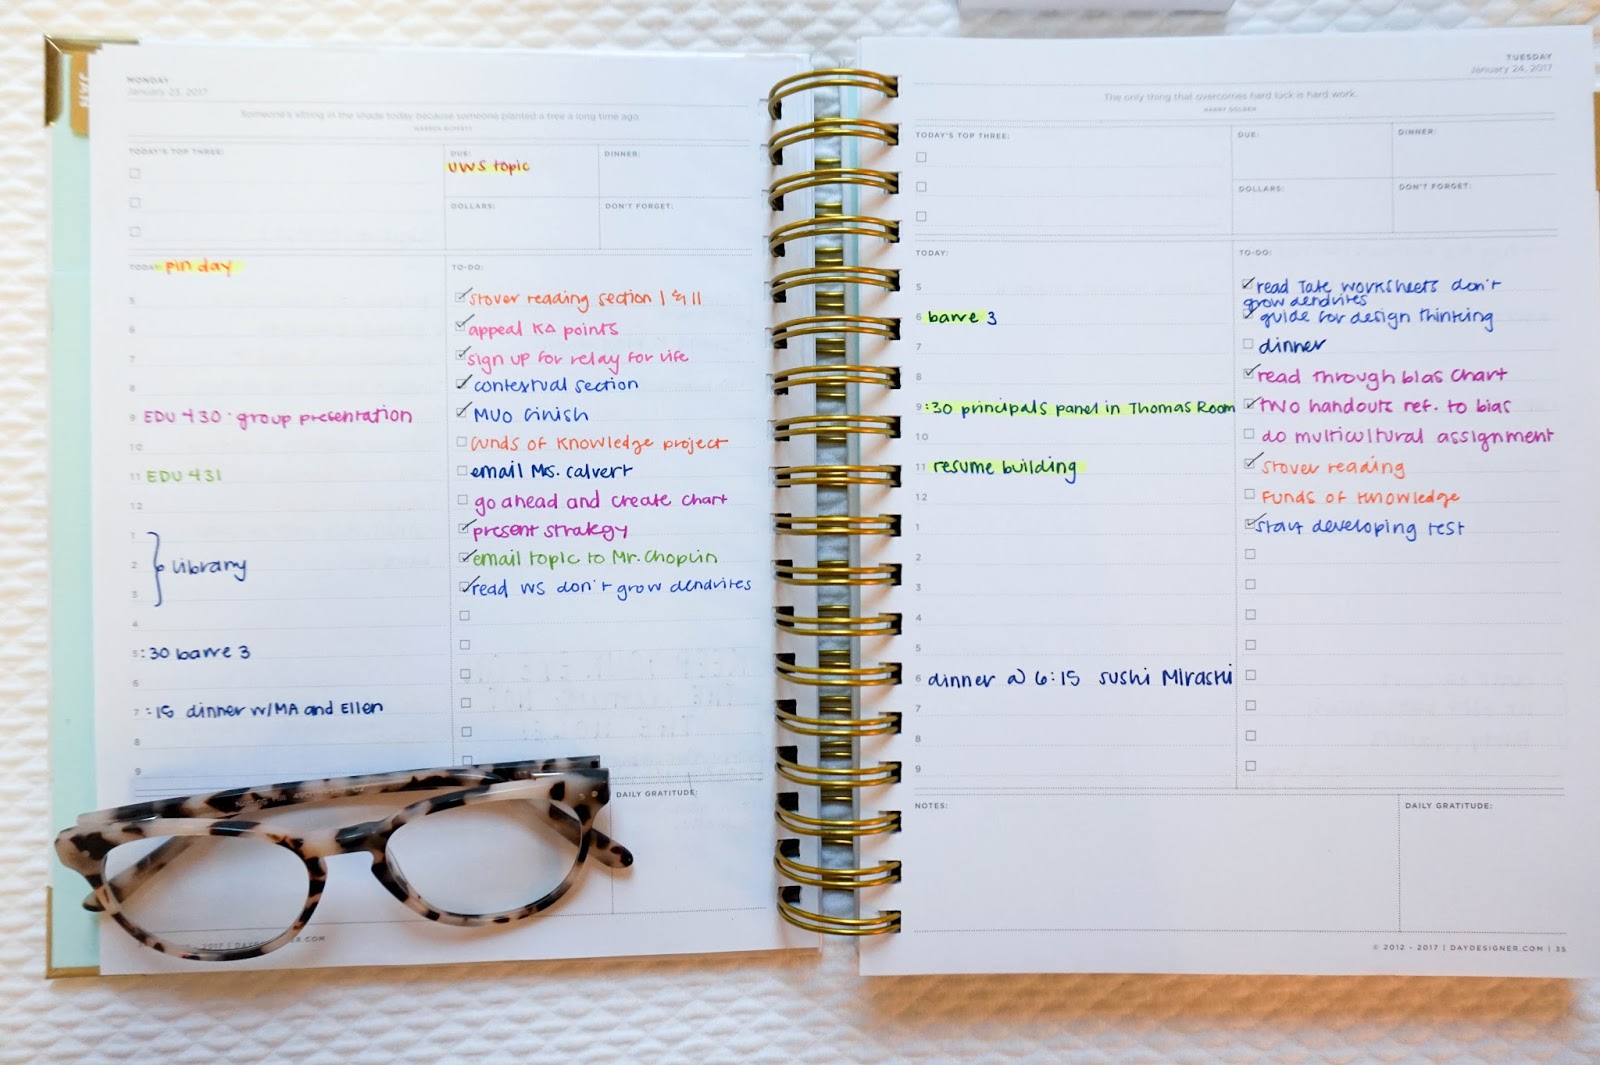 JAN
MONDAY
January 23, 2017
Someone's sitting in the shade today because someone planted a tree a long time ago.
WARREN BUFFETT
TODAY'S TOP THREE:
DUE:
UWS topic
DINNER:
DOLLARS:
DON'T FORGET:
TODAY: pin day
5
6
7
8
9 EDU 430 - group presentation
10
11 EDU 431
12
1
2 Library
3
4
5 :30 barre 3
6
7 :15 dinner w/MA and Ellen
8
9
TO-DO:
stover reading section I & II
appeal KΔ points
sign up for relay for life
contextual section
MUO finish
funds of knowledge project
email Mrs. Calvert
go ahead and create chart
present strategy
email topic to Mr. Choplin
read WS don't grow dendrites
DAILY GRATITUDE:
2017 | DAYDESIGNER.COM
TUESDAY
January 24, 2017
The only thing that overcomes hard luck is hard work.
HARRY GOLDEN
TODAY'S TOP THREE:
DUE:
DINNER:
DOLLARS:
DON'T FORGET:
TODAY:
5
6 barre 3
7
8
9 :30 principals panel in Thomas Room
10
11 resume building
12
1
2
3
4
5
6 dinner @ 6:15 sushi Mirashi
7
8
9
TO-DO:
read Tate worksheets don't
grow dendrites
guide for design thinking
dinner
read through bias chart
two handouts ref. to bias
do multicultural assignment
stover reading
Funds of Knowledge
start developing test
NOTES:
DAILY GRATITUDE:
© 2012 - 2017 | DAYDESIGNER.COM | 35